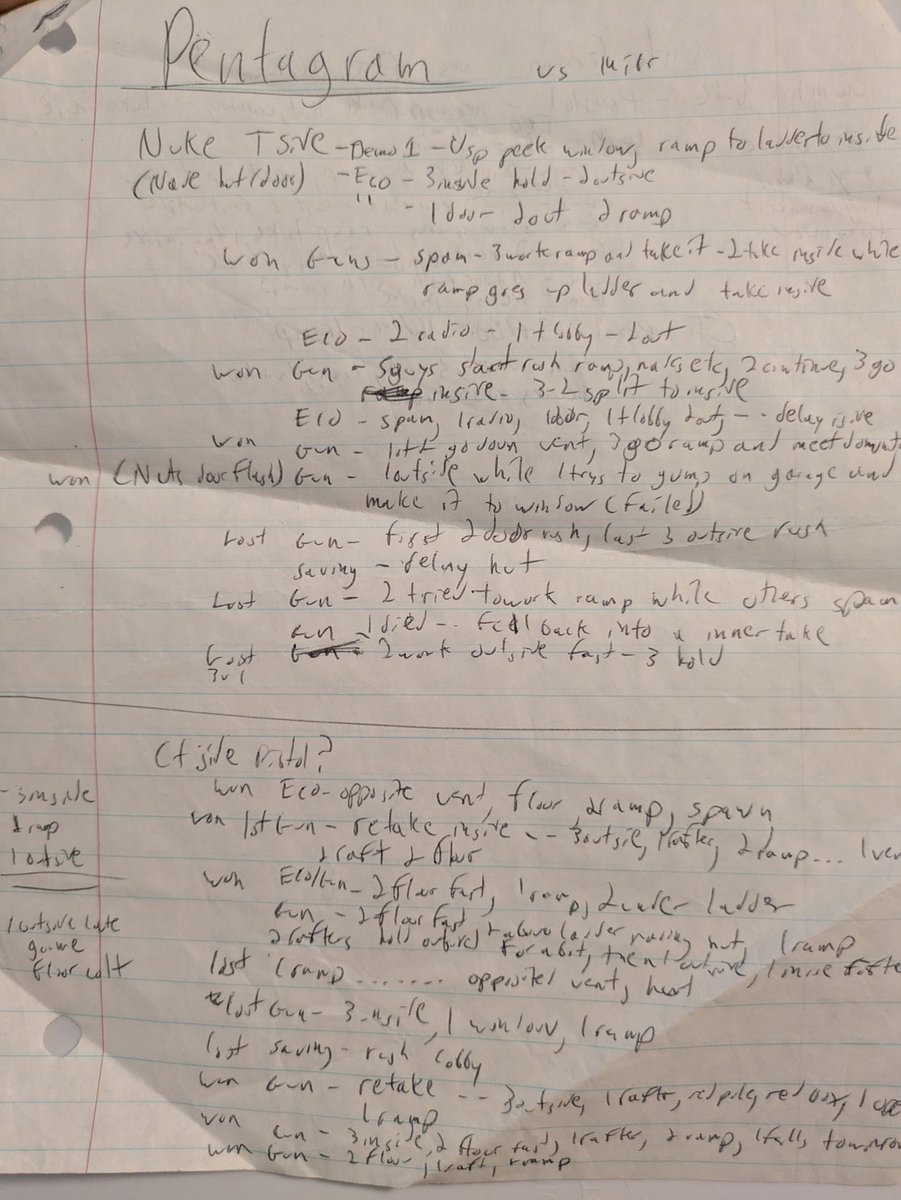 Pentagram vs
Nuke T Side - Demo 1 - Usp peek window, ramp to ladder to inside
- Eco - 3 inside hold - 2 outside
" - 1 door 2 out 2 ramp
won Guns - spam - 3 work ramp and take it - 2 take inside while
ramp goes up ladder and take inside
Eco - 2 radio - 1 t lobby - 2 out
won Gun - 5 guys start rush ramp, nades etc, 2 continue, 3 go
inside - 3-2 split to inside
Eco - spam, 1 radio, 1 door, 1 t lobby 2 out, -- delay
won Gun - go down vent, 3 go ramp and meet
won (Nuts door flash) Gun - 1 outside while 1 trys to gump on garage and
make it to window (failed)
Lost Gun - first 2 door rush, last 3 outside rush
saving - delay hut
Lost Gun - 2 tried to work ramp while others spam
1 died -- fell back into a inner take
Lost 2 work outside fast - 3 hold
3v1
Ct side Pistol?
won Eco - opposite vent, floor, 2 ramp, spawn
won 1st Gun - retake inside -- 3 outside, 1 rafter, 2 ramp ... 1
2 raft 2 floor
won Eco/Gun - 2 floor fast, 1 ramp, 2 under ladder
Gun - 2 floor fast 1 above ladder hut, 1 ramp
2 rafters hold for a bit, then 1 outside, 1
lost 1 ramp ....... opposite vent, heat
lost Gun - 3 inside, 1 window, 1 ramp
lost saving - rush lobby
won Gun - retake -- 3 outside, 1 rafter, red pile, red box, 1
won 1 ramp
Gun - 3 inside, 2 floor fast, 1 rafter, 2 ramp, 1 falls
won Gun - 2 floor, 1 raft, ramp
- 3 inside
1 ramp
1 outside
1 outside late
game
floor